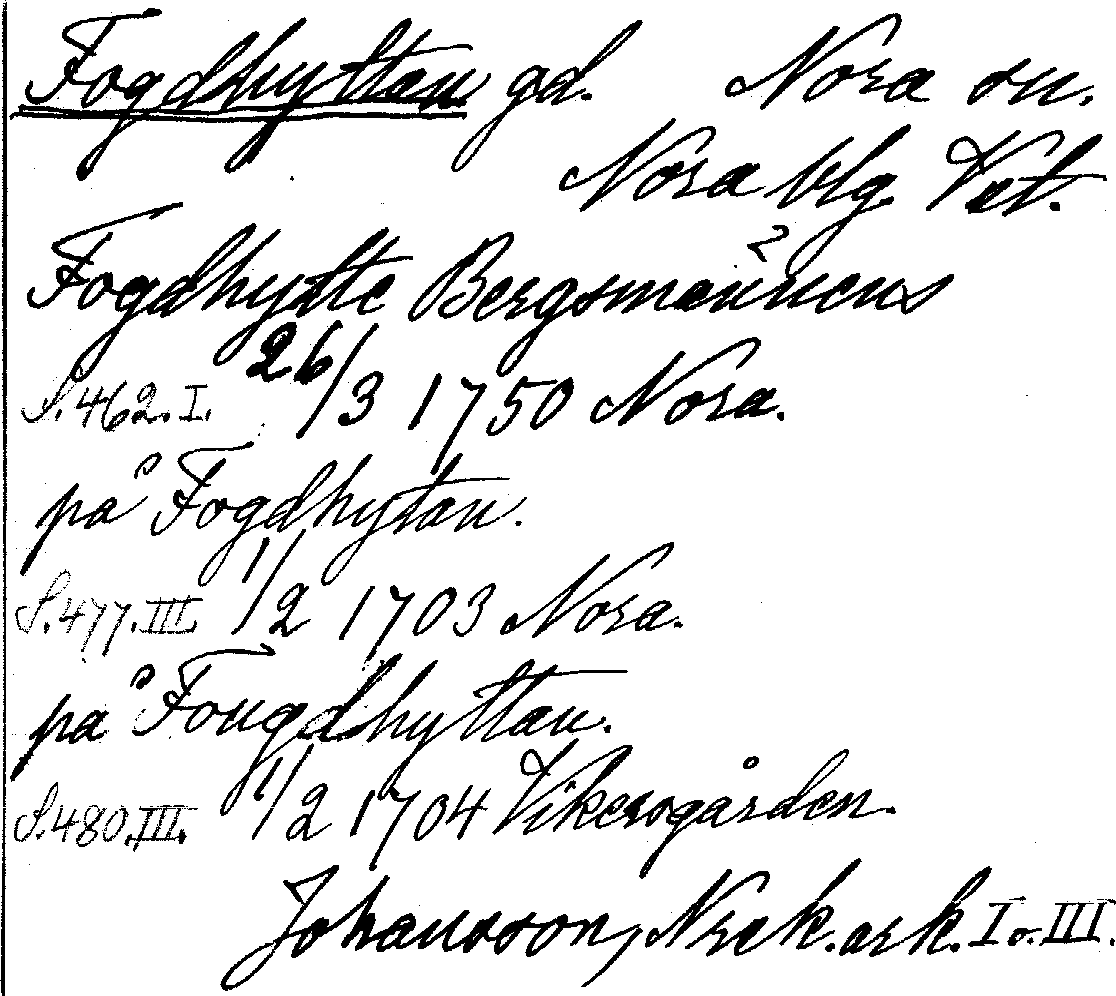 Fogdhyttan gd. Nora sn.
Nora blg. Vst.
Fogdhytte Bergsmännens
S. 462. I. 26/3 1750 Nora.
på Fogdhytan.
S. 477. III. 1/2 1703 Nora.
på Fougdhyttan.
S. 480. III. 1/2 1704 Vikersgården.
Johansson, Nrek. ark. I o. III.